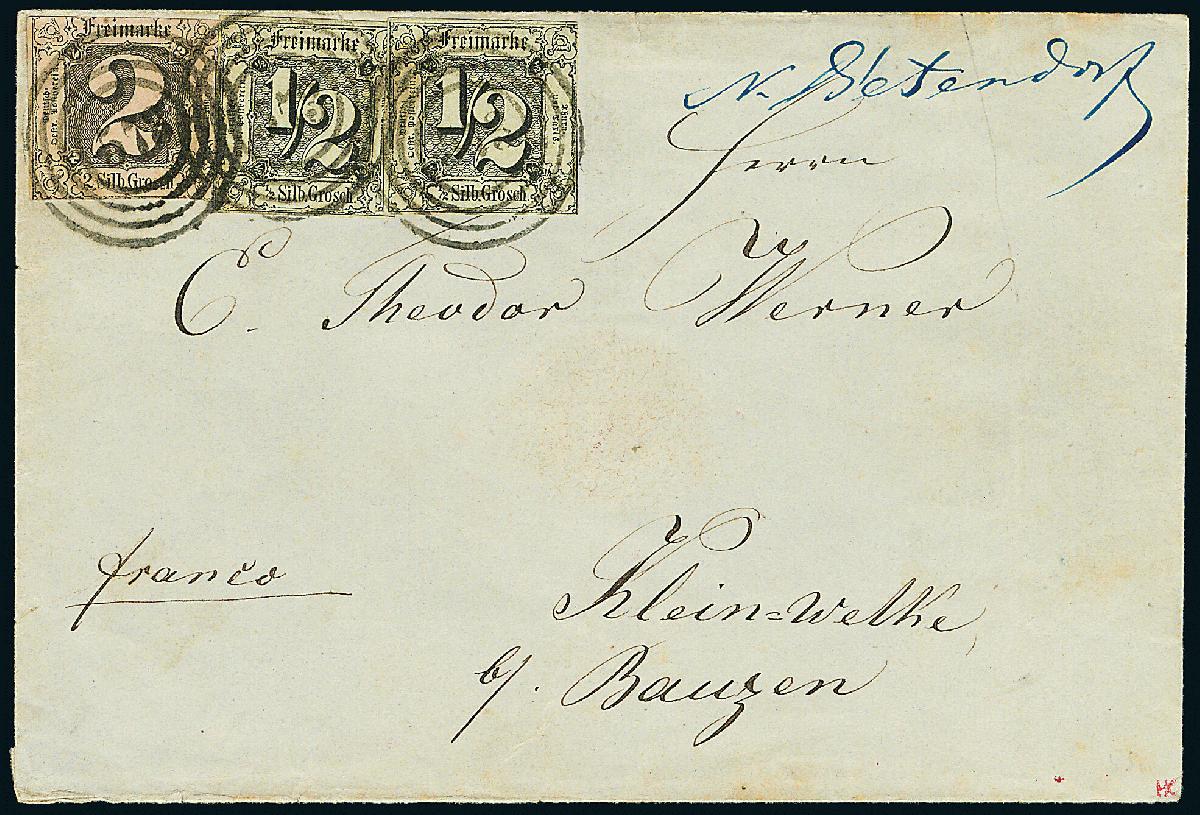 Freimarke Freimarke Freimarke
2 1/2 1/2
2 Silb. Grosch. 1/2 Silb. Grosch. 1/2 Silb. Grosch.
Herrn
C. Theodor Werner
franco
Klein=Welke
b/. Bauzen
HK